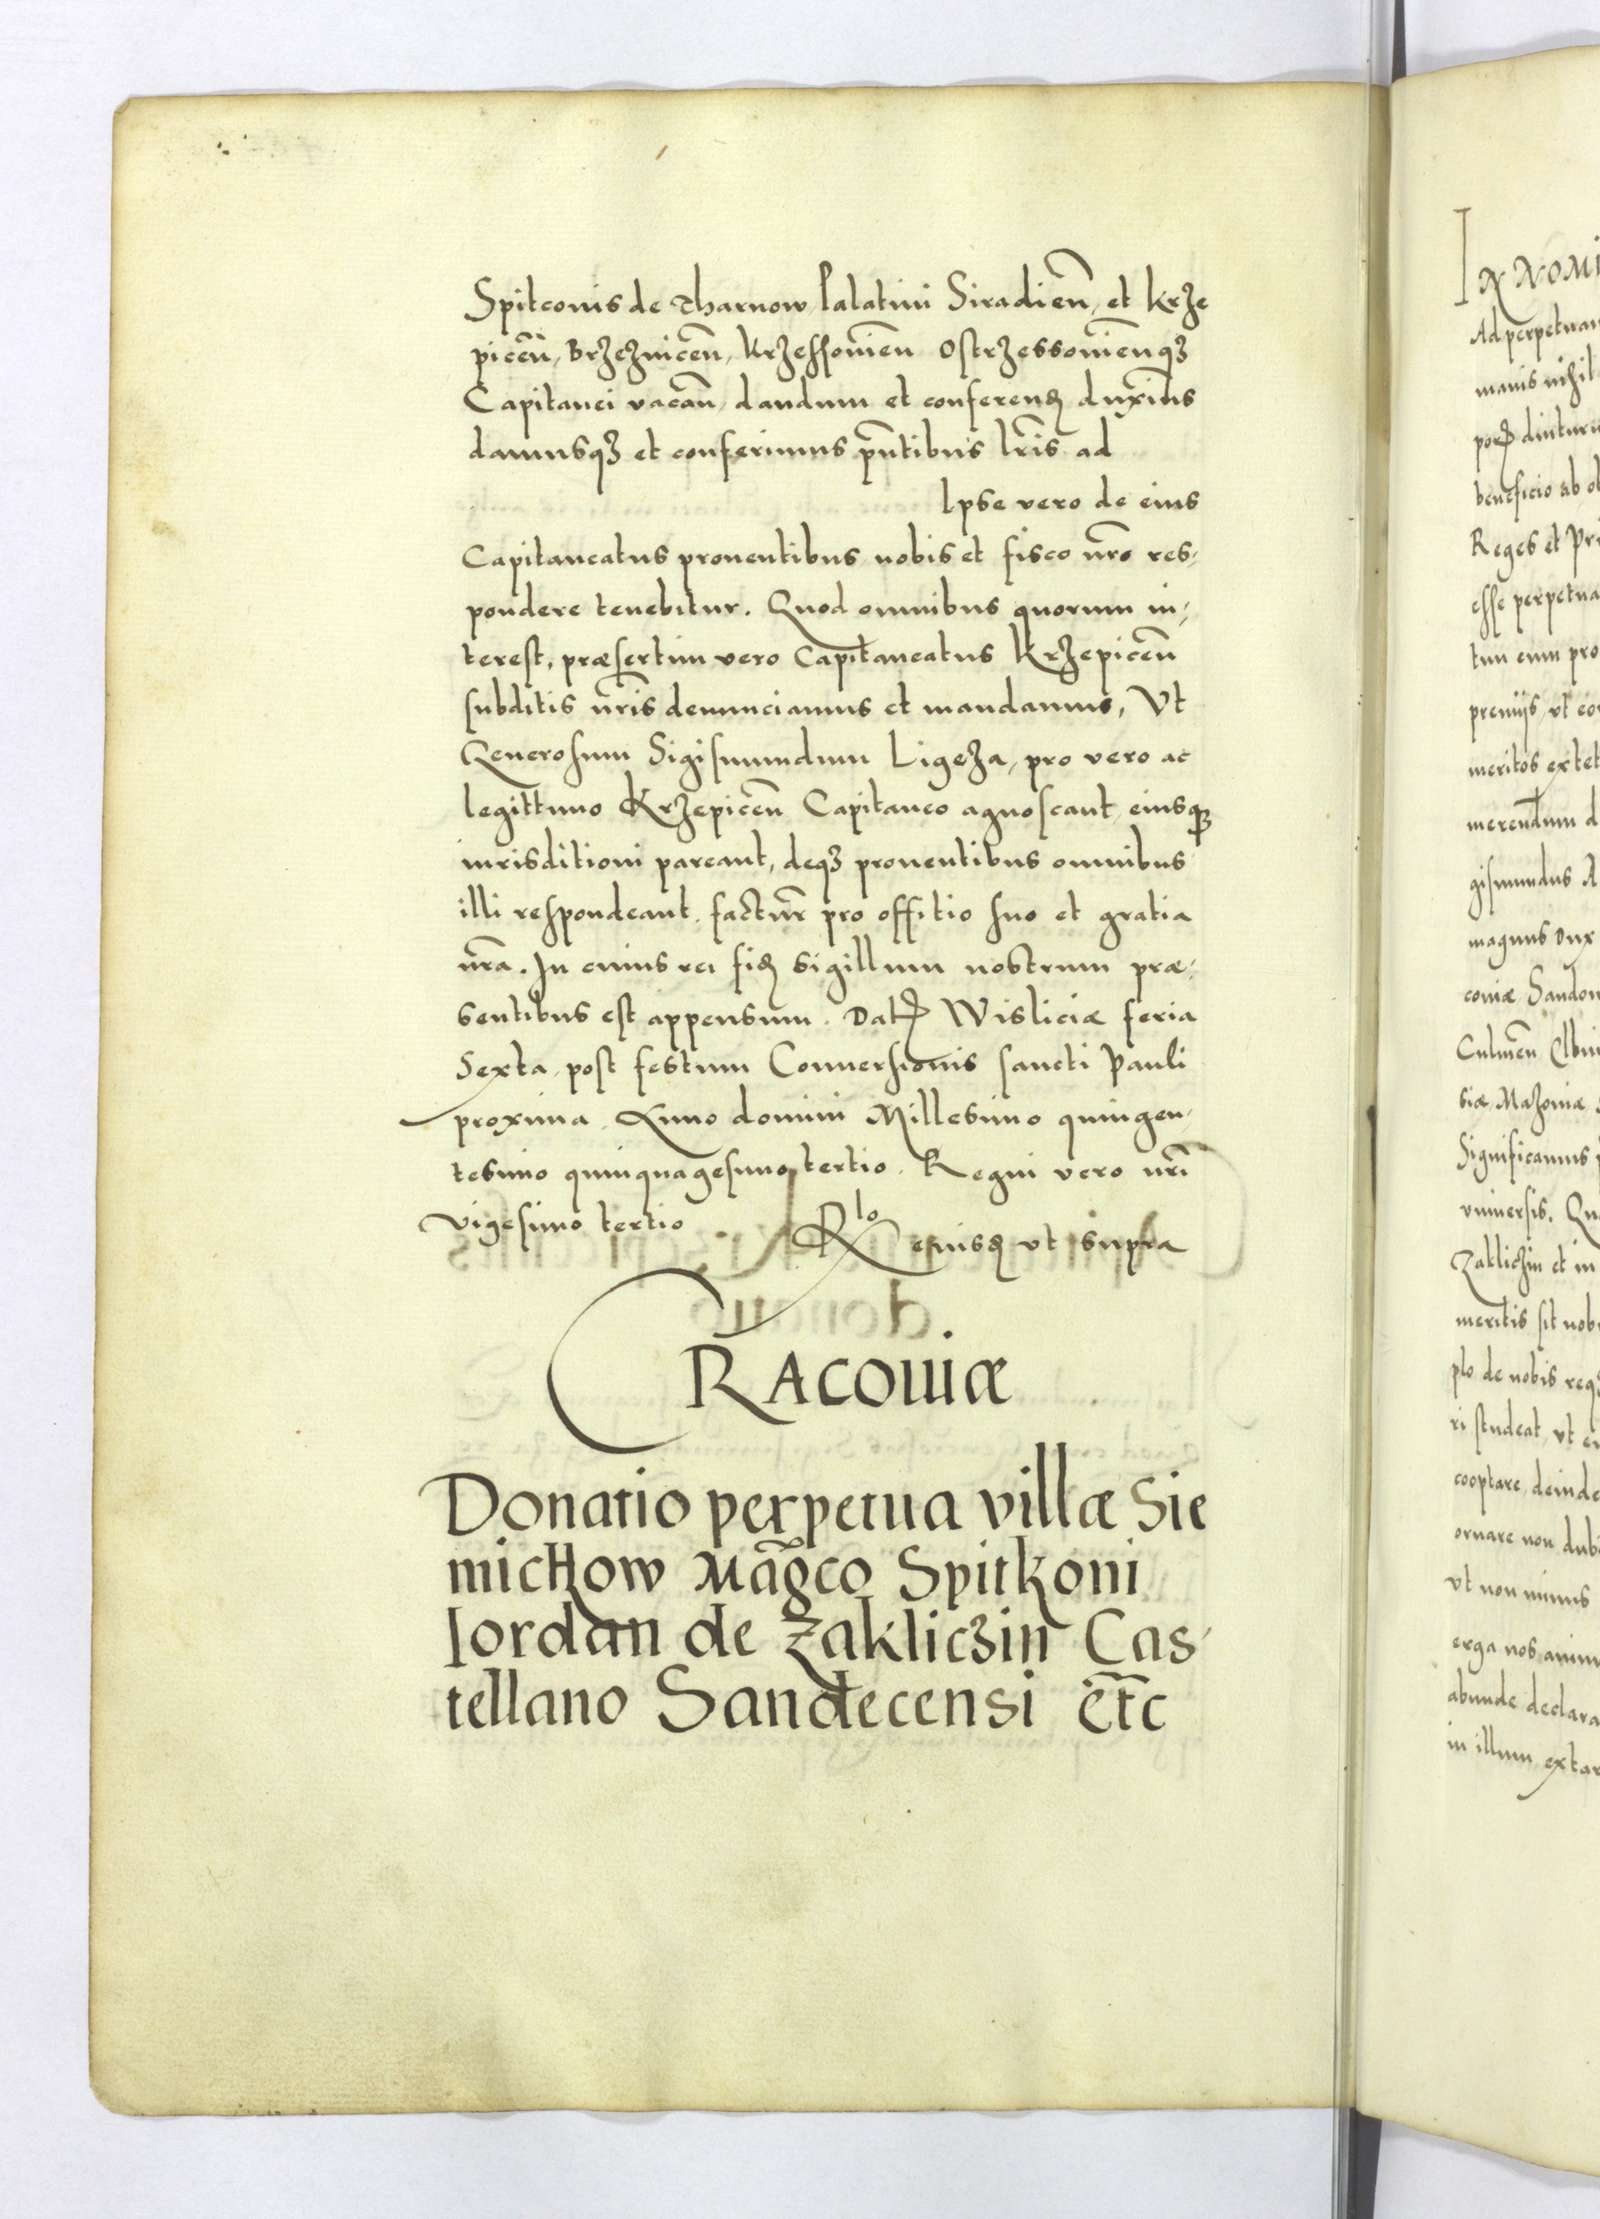 Spitconis de Tharnow Palatini Siradien̄, et Krze
picen̄, Brzeznicen̄, Krzessovien̄ Ostrzessovienq₃
Capitanei vacan̄, dandum et conferenꝝ duxim̄s
damusq₃ et conferimus pn̄tibus lr̄is ad
Ipse vero de eius
Capitaneatus prouentibus nobis et fisco nr̄o res-
pondere tenebitur. Quod omnibus quorum in-
terest, præsertim vero Capitaneatus Krzepicen̄
subditis nr̄is denunciamus et mandamus, Vt
Generosum Sigismundum Ligeza, pro vero ac
legittimo Krzepicen̄ Capitaneo agnoscant, eiusq₃
iurisditioni pareant, deq₃ prouentibus omnibus
illi respondeant. factur̄ pro offitio suo et gratia
nr̄a. In cuius rei fiꝝ sigillum nostrum præ-
sentibus est appensum. Datꝝ Wisliciæ feria
Sexta, post festum Conuersionis sancti Pauli
proxima. Anno domini Millesimo quingen-
tesimo quinquagesimo tertio. Regni vero nr̄i
vigesimo tertio
Rlo eiusꝝ vt supra
CRACOUIÆ
Donatio perpetua villæ Sie
michow Mag̃co Spitkoni
Iordan de Zakliczin Cas-
tellano Sandecensi et̄c
IN NOMI
Ad perpetuam
manis nihil
porꝝ diuturn
beneficio ab ob
Reges et Pri
esse perpetua
tum eum pro
premijs, vt eo
meritos extet
merendum d
gismundus A
magnus Dux
coniæ Sandom
Culmen̄ Elbin
siæ, Mazouiæ
Significamus
vniuersis. Qu
Zakliczin et in
meritis sit nobi
plo de nobis req
ri studeat, vt eu
cooptare, deinde
ornare non dubi
vt non minus
erga nos anim
abunde declara
in illum extar